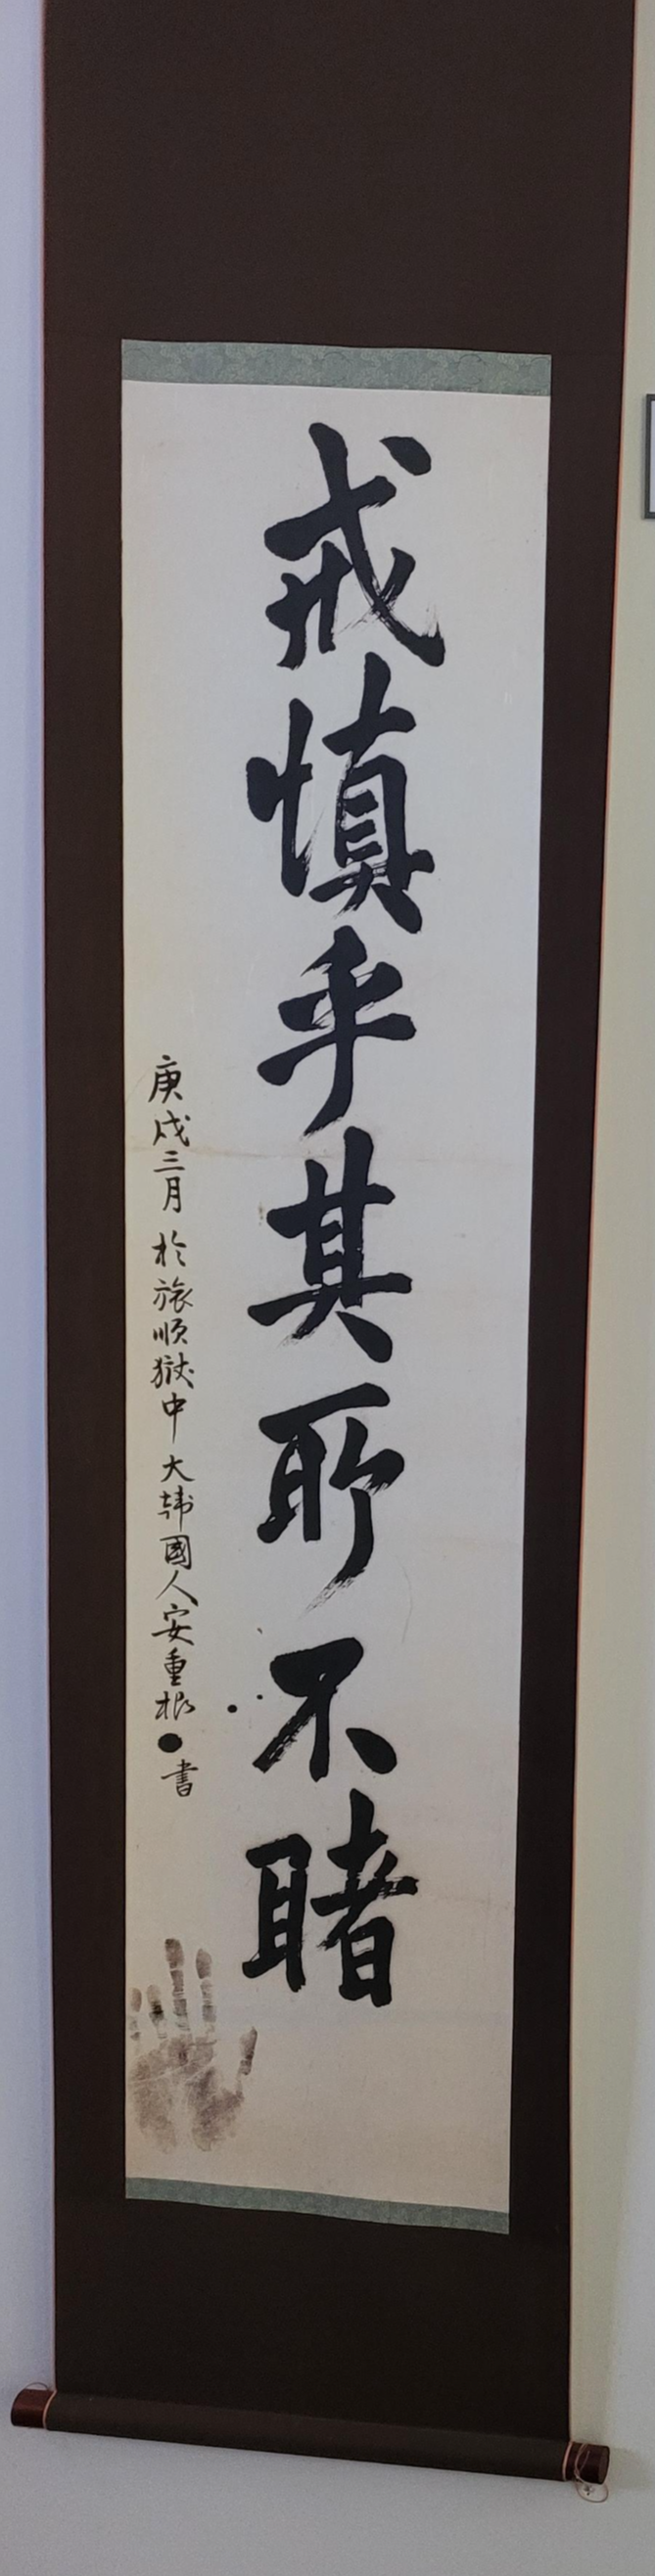 戒慎乎其所不睹
庚戌三月 於旅順獄中 大韓國人安重根 書